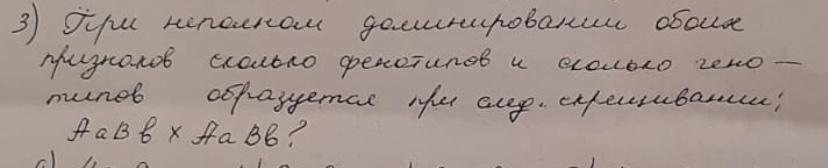 3) При неполном доминировании обоих
признаков сколько фенотипов и сколько гено-
типов образуется при след. скрещивании:
АаВb х АаВb?
а)